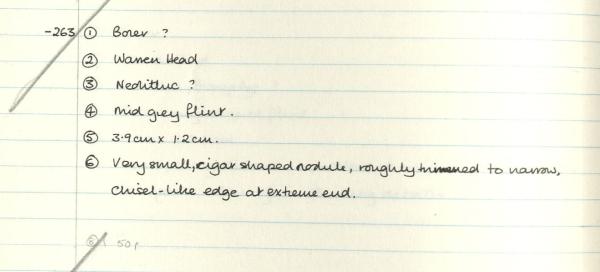 -263 ① Borer ?
② Warren Head
③ Neolithic ?
④ mid grey flint.
⑤ 3.9cm x 1.2cm.
⑥ Very small, cigar shaped nodule, roughly trimmed to narrow,
chisel-like edge at extreme end.
⑧ 50p